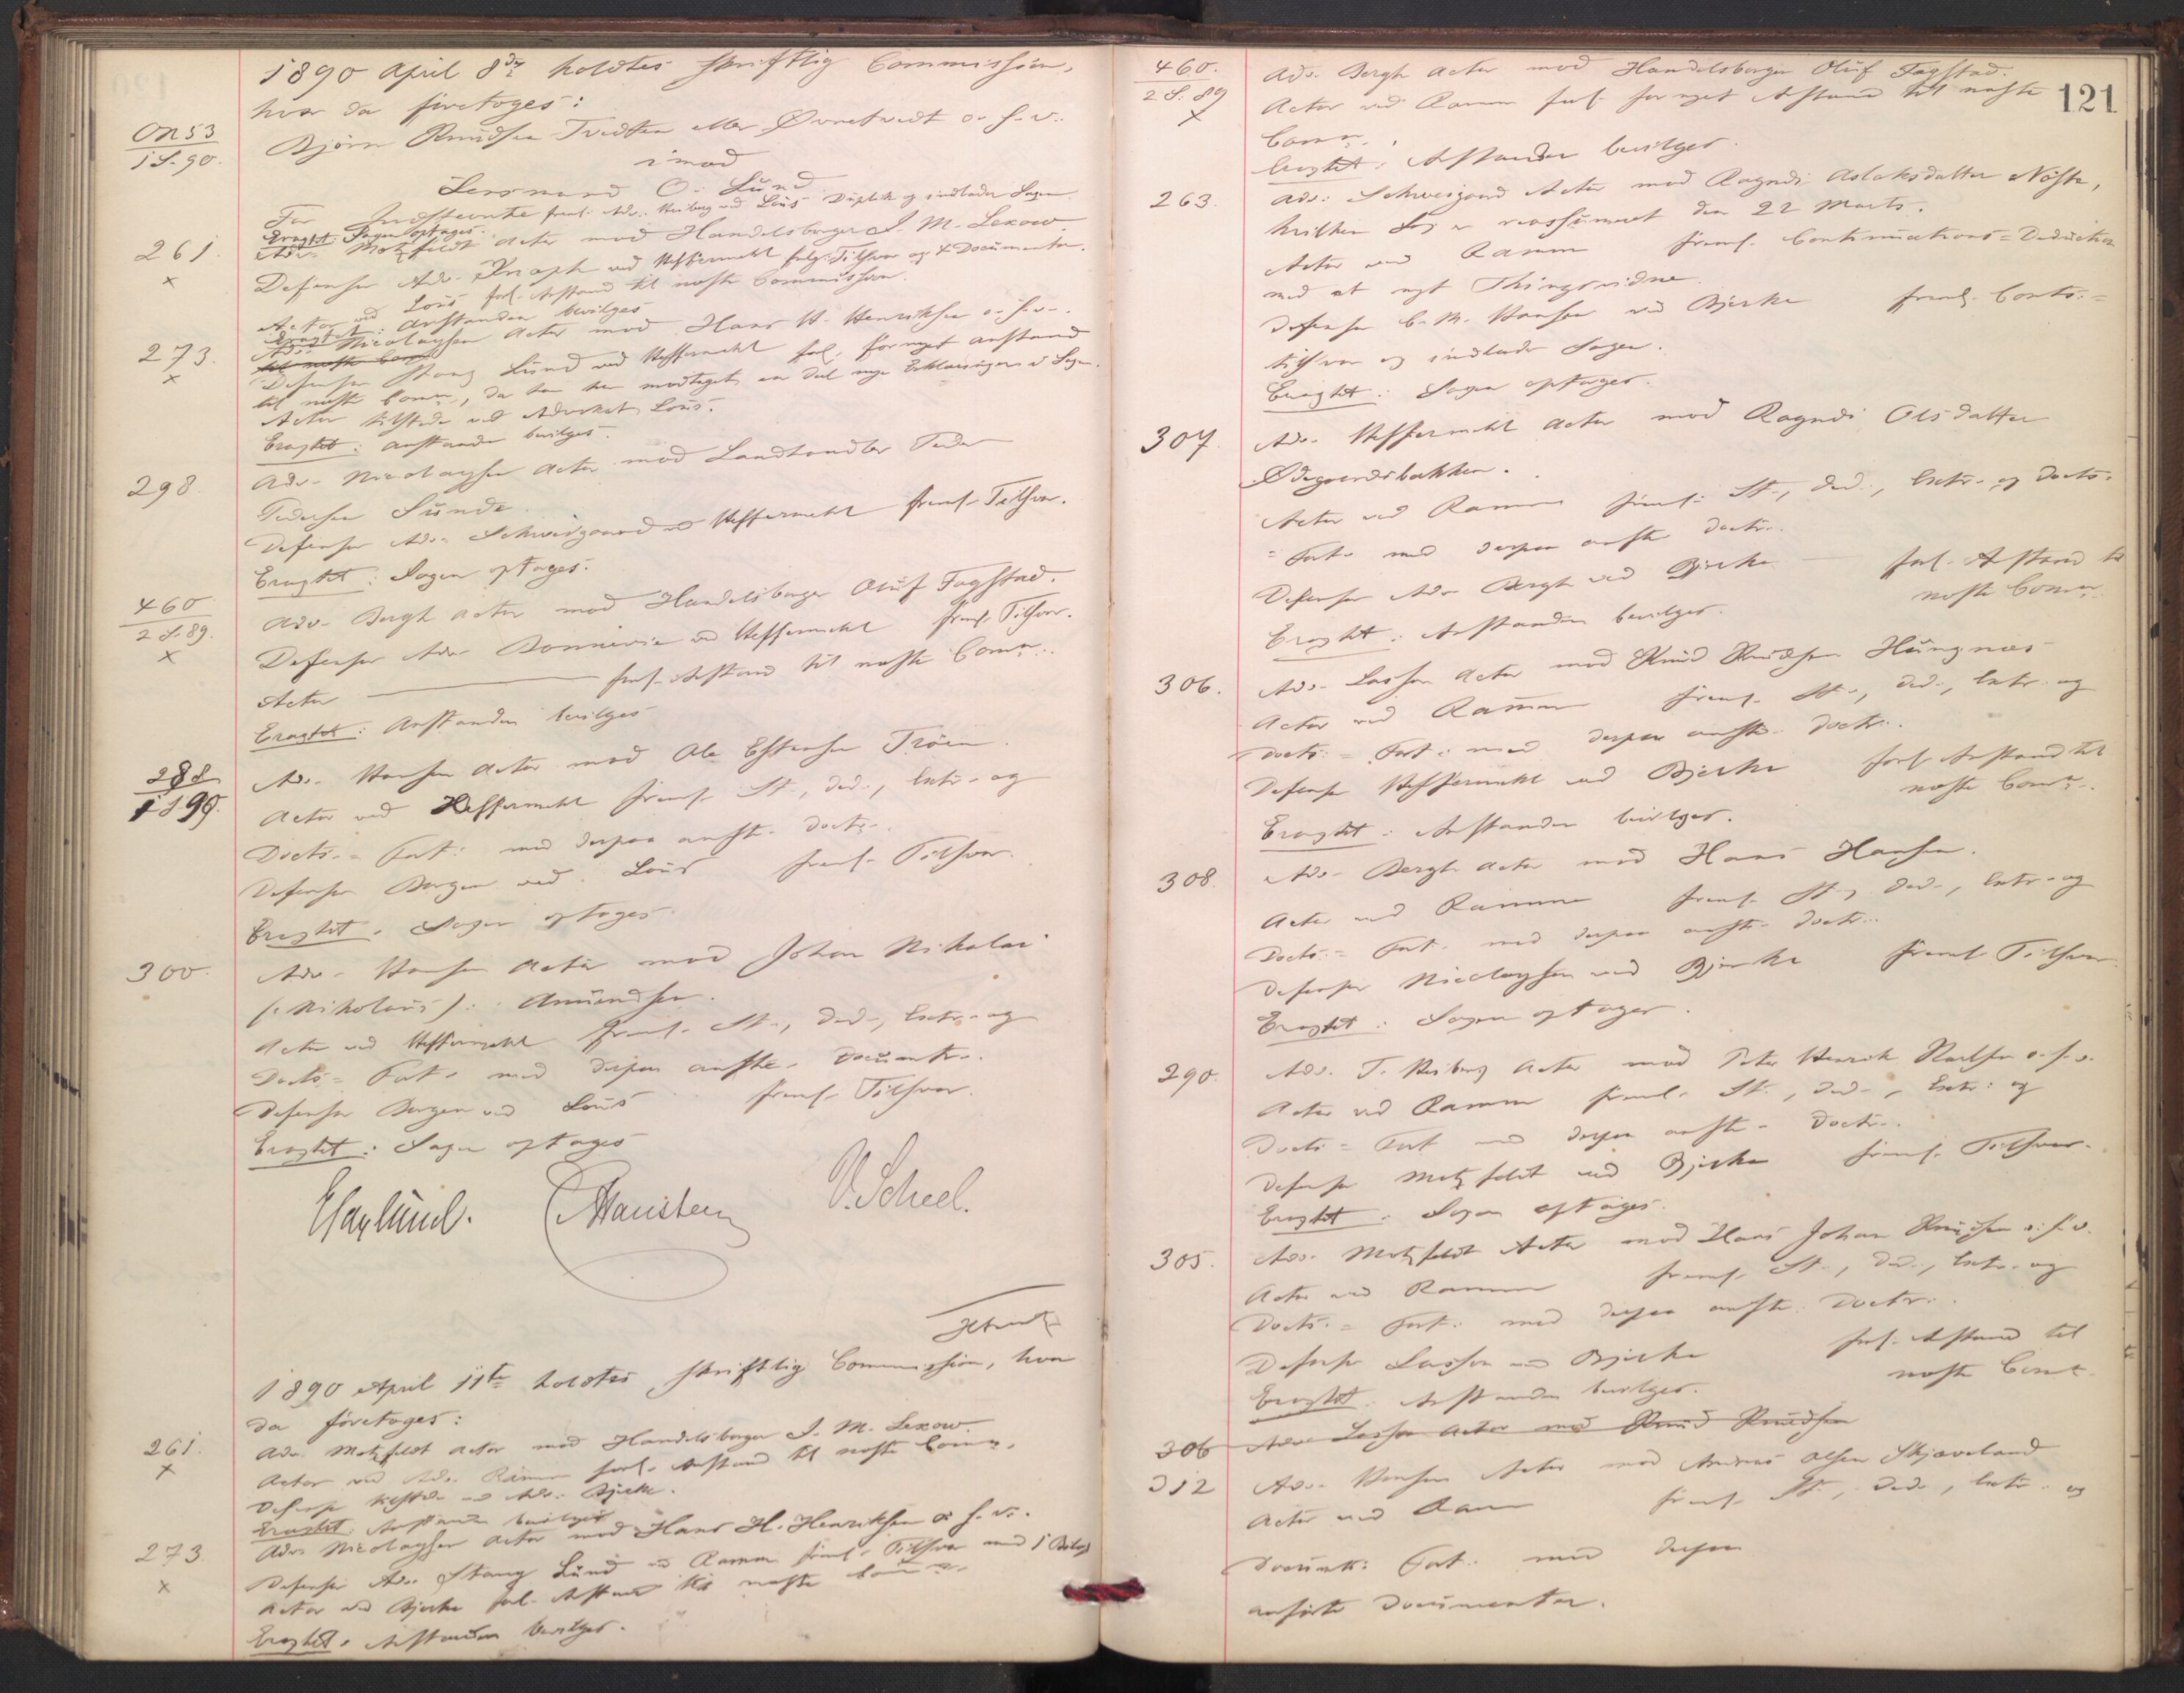 1890 April 8de holdtes skriftlig Commission,
hvor da foretoges:
ON 53
1 S. 90.
Bjørn Knudsen Tvedten eller Øvretvedt o. s. v.
imod
Lensmand O. Lund
For Indstevnte freml. Adv. Heiberg ved Lous Duplik og indlader Sagen
Eragtet: Sagen optages.
261.
x
Adv. Motzfeldt Actor mod Handelsborger J. M. Lexow.
Defensor Adv. Knoph ved Heffermehl Tilsvar og 4 Documenter.
Actor ved Lous forl. Anstand til næste Commission.
Eragtet: Anstanden bevilges
273.
x
Adv. Nicolaysen Actor mod Hans H. Henriksen o. s. v.
til næste Com
Defensor Stang Lund ved Heffermehl forl. fornyet anstand
til næste Comn, da han har modtaget en del nye Erklæringer i Sagen.
Actor tilstede ved Advokat Lous.
Eragtet: anstanden bevilges.
298.
Adv. Nicolaysen Actor mod Landhandler Peder
Pedersen Sunde.
Defensor Adv. Schweigaard ved Heffermehl freml. Tilsvar.
Eragtet: Sagen optages.
460
2 S. 89.
x
Adv. Bergh Actor mod Handelsborger Oluf Fagstad.
Defensor Adv. Bonnevie ved Heffermehl freml. Tilsvar.
Actor forl. Anstand til næste Comn.
Eragtet: Anstanden bevilges
288
1 S 90.
Adv. Hansen Actor mod Ole Estensen Trøen.
Actor ved Heffermehl freml. St., Ded., Extr. og
Docts. = Fort. med derpaa anførte Doctr.
Defensor Borgen ved Lous freml. Tilsvar.
Eragtet: Sagen optages.
300.
Adv. Hansen Actor mod Johan Nikolai
(: Nikolaus :) Amundsen.
Actor ved Heffermehl freml. St., Ded., Extr. og
Docts. = Fort. med derpaa anførte Documtr.
Defensor Borgen ved Lous freml. Tilsvar.
Eragtet: Sagen optages
E Haglund. C Hansteen V. Scheel.
1890 April 11te holdtes skriftlig Commission, hvor
da foretoges:
261.
x
Adv. Motzfeldt Actor mod Handelsborger J. M. Lexow.
Actor ved Adv. Ramm forl. Anstand til næste Comn.
Defensor tilstede ved Adv. Bjerke.
Eragtet: Anstanden bevilges
273.
x
Adv. Nicolaysen Actor mod Hans H. Henriksen o. s. v.
Defensor Adv. Stang Lund ved Ramm freml. Tilsvar med 1 Bilag
Actor ved Bjerke forl. Anstand til næste Comn.
Eragtet: Anstanden bevilges.
121
460.
2 S. 89
x
Adv. Bergh Actor mod Handelsborger Oluf Fagstad.
Actor ved Ramm forl. fornyet Anstand til næste
Comn.
Eragtet: Anstanden bevilges.
263.
Adv. Schweigaard Actor mod Ragndi Aslaksdatter Næste,
hvilken Sag er reassumeret den 22 Marts.
Actor ved Ramm freml. Continuations = Deduction
med et nyt Thingsvidne.
Defensor C. M. Hansen ved Bjerke freml. Conts. =
tilsvar og indlader Sagen.
Eragtet: Sagen optages.
307.
Adv. Heffermehl Actor mod Ragndi Olsdatter
Ødegaardsbakken.
Actor ved Ramm freml. St., Ded., Extr. og Docts.
= Fort. med derpaa anførte Doctr.
Defensor Adv. Bergh ved Bjerke forl. Anstand til
næste Comn.
Eragtet: Anstanden bevilges.
306.
Adv. Lasson Actor mod Knud Knudsen Hungnæs
Actor ved Ramm freml. St., Ded., Extr. og
Docts. = Fort. med derpaa anførte Doctr.
Defensor Heffermehl ved Bjerke forl. Anstand til
næste Comn.
Eragtet: Anstanden bevilges.
308.
Adv. Bergh Actor mod Hans Hansen.
Actor ved Ramm freml. St., Ded., Extr. og
Docts. = Fort. med derpaa anførte Doctr.
Defensor Nicolaysen ved Bjerke freml. Tilsvar
Eragtet: Sagen optages.
290.
Adv. T. Heiberg Actor mod Peter Henrik Karlsen o. s. v.
Actor ved Ramm freml. St., Ded., Extr. og
Docts. = Fort. med derpaa anførte Doctr.
Defensor Motzfeldt ved Bjerke freml. Tilsvar.
Eragtet: Sagen optages.
305.
Adv. Motzfeldt Actor mod Hans Johan Knudsen o. s. v.
Actor ved Ramm freml. St., Ded., Extr. og
Docts. = Fort. med derpaa anførte Doctr.
Defensor Lasson ved Bjerke forl. Anstand til
næste Comn.
Eragtet: Anstanden bevilges.
306 Adv. Lasson Actor mod Knud Knudsen
312 Adv. Hansen Actor mod Andreas Olsen Skjæveland
Actor ved Ramm freml. St., Ded., Extr. og
Documts. Fort. med derpaa
anførte Documenter.